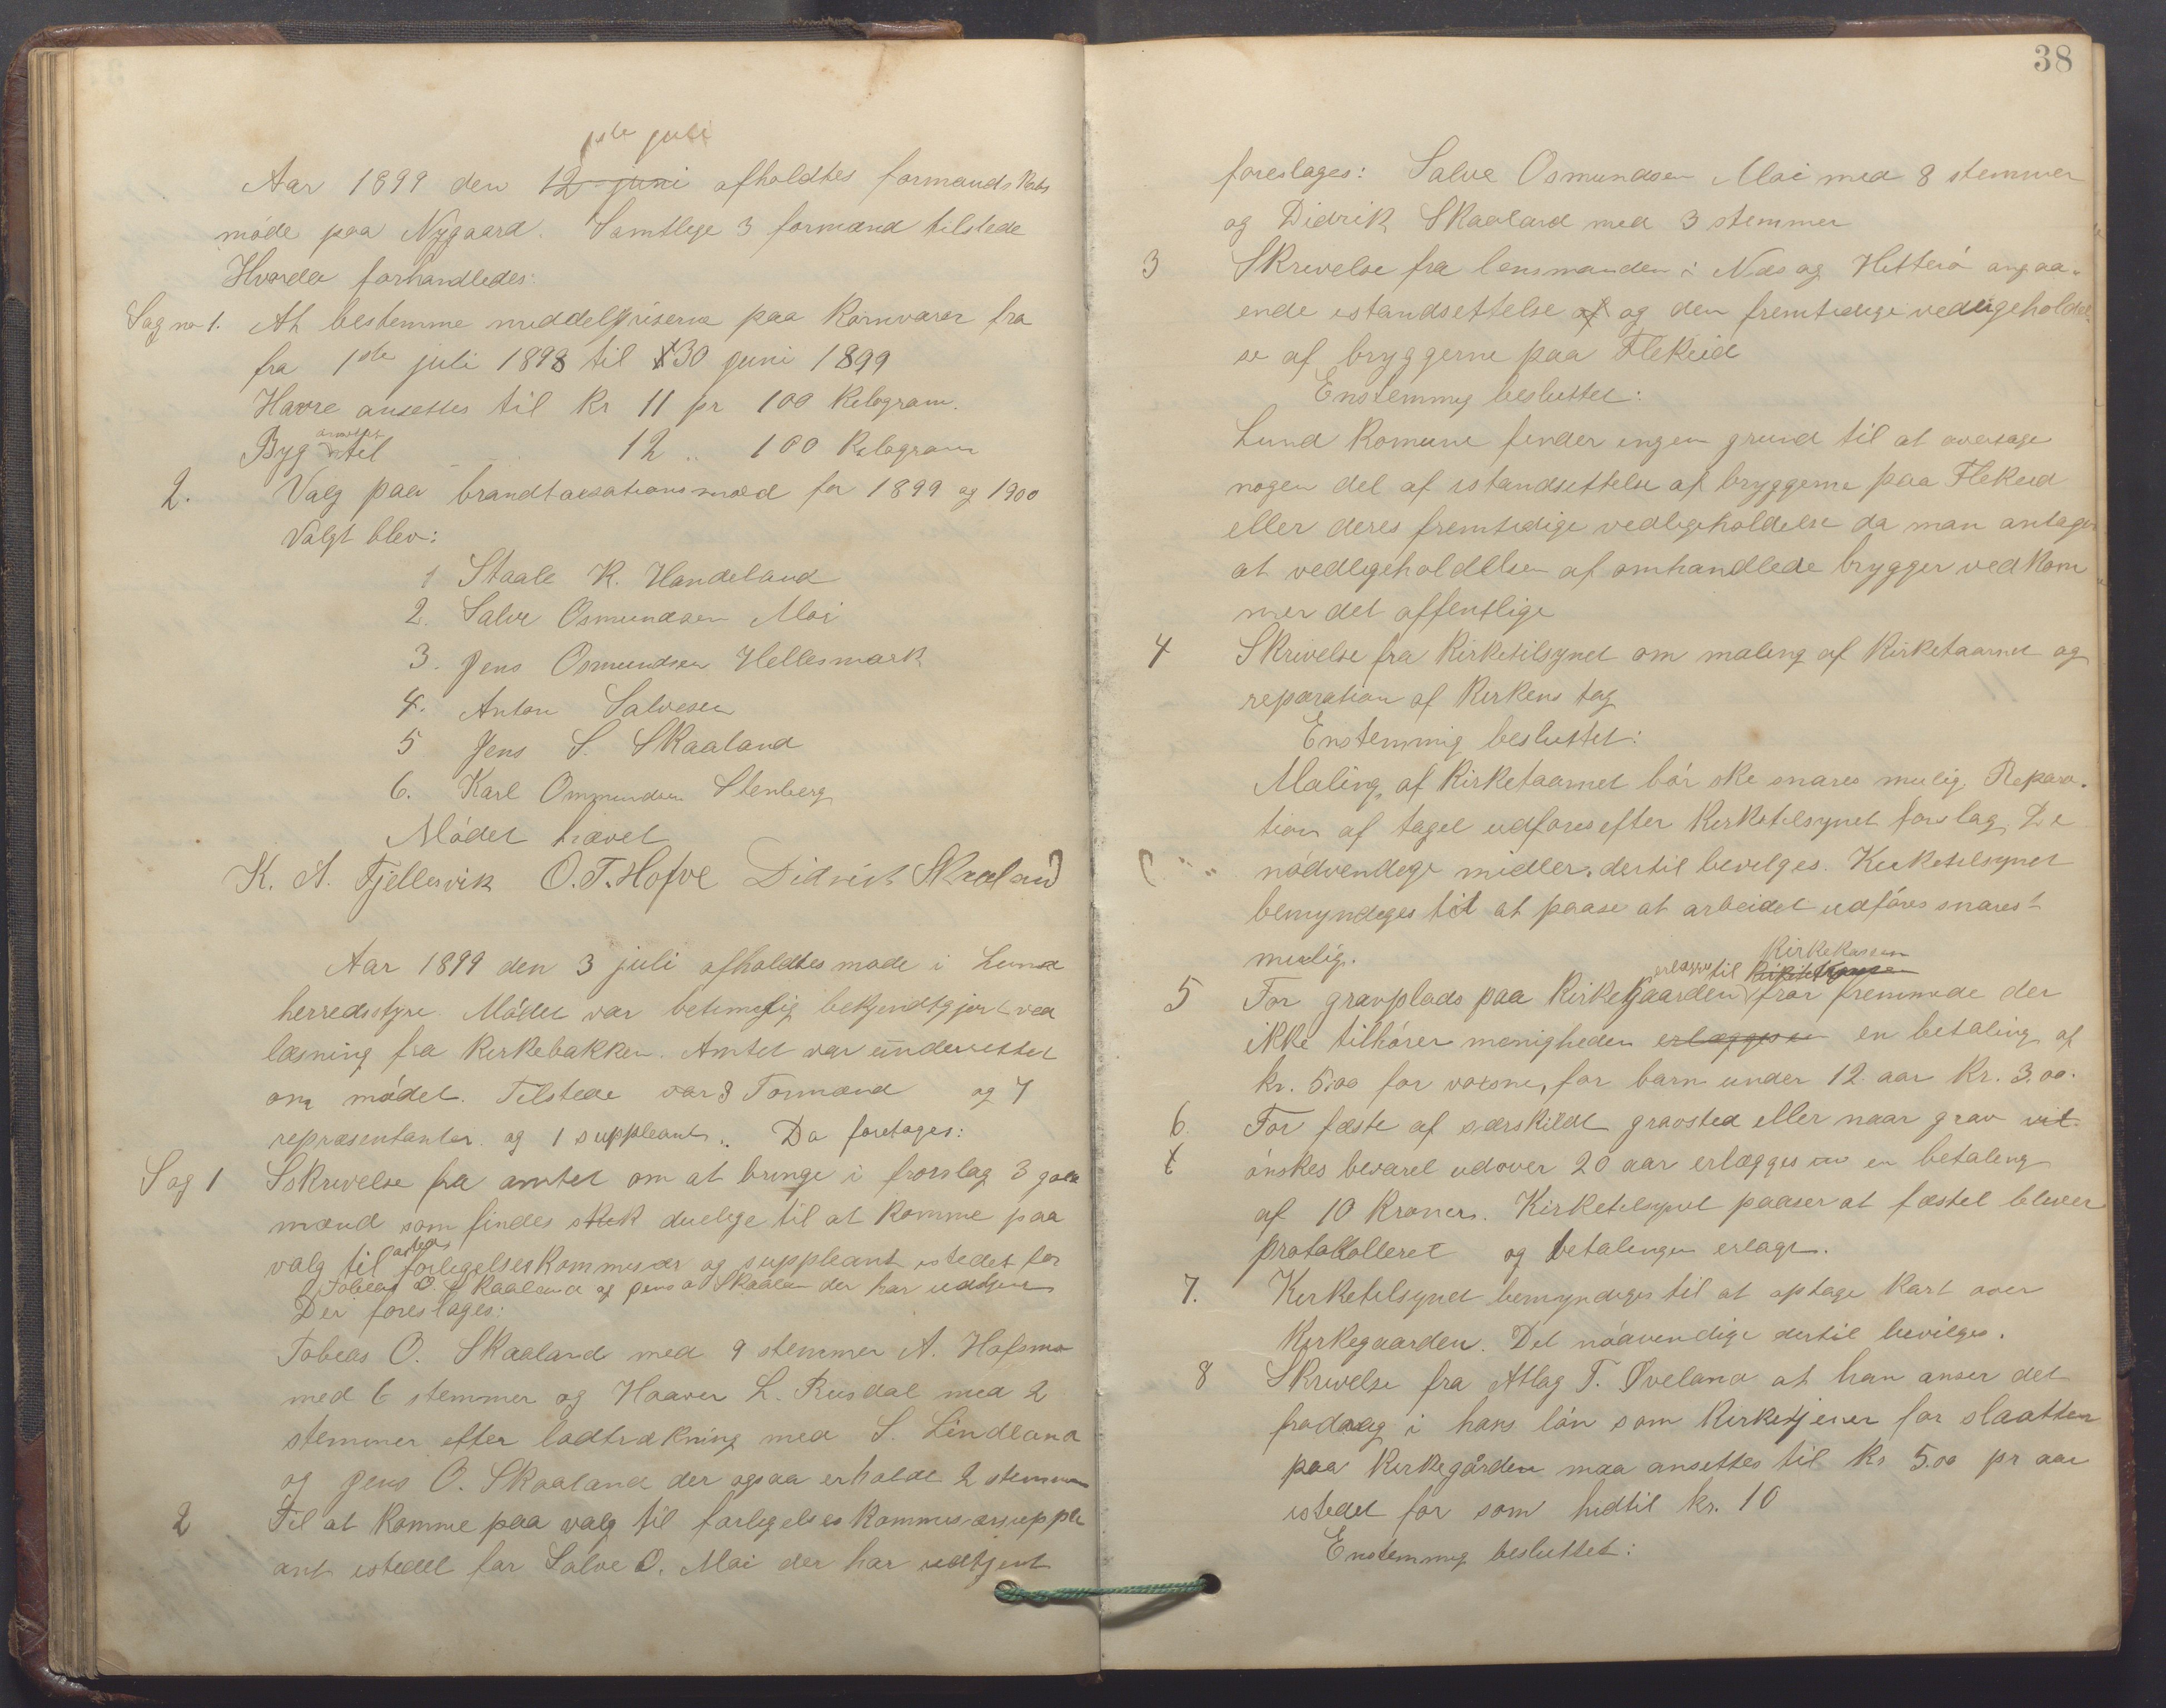 1ste juli
Aar 1899 den 12 juni afholdtes formandskabs
møde paa Nygaard. Samtlege 3 formænd tilstede
Hvorda forhandledes:
Sag no 1. At bestemme middelpriserne paa Kornvarer fra
fra 1ste juli 1898 til 30 juni 1899
Havre ansettes til Kr 11 pr 100 Kilogram.
ansettes
Byg til 12 " 100 Kilogram
2. Valg paa brandtaxsationsmænd for 1899 og 1900
Valgt blev:
1 Staale K. Handeland
2. Salve Osmundsen Moi
3. Jens Osmundsen Hellesmark
4. Anton Salvesen
5 Jens S. Skaaland
6. Karl Ommundsen Stenberg
Mødet hævet
K. A. Fjellesvik O.T. Hofve Didrick Skaaland
Aar 1899 den 3 juli afholdtes møde i Lund
herredsstyre. Mødet var betimelig bekjendtgjort ved
læsning fra Kirkebakken. Amtet var underrettet
om mødet. Tilstede var 3 Formænd og 7
repræsentanter og 1 suppleant. Da foretages:
Sag 1 Skrivelse fra amtet om at bringe i forslag 3
mænd som findes duelige til at komme paa
valg til forligelseskommisær og suppleant istedet for
Tobias O. Skaaland og Jens O Skaaland der har udtjent
Der foreslages:
Tobias O. Skaaland med 9 stemmer A. Hofsmo
med 6 stemmer og Haaver L. Rusdal med 2
stemmer efter lodtrækning med S. Lindland
og Jens O. Skaaland der ogsaa erholdt 2 stemmer
2 Til at komme paa valg til forligelseskommisærsupple
ant istedet for Salve O. Moi der har udtjent
38
foreslages: Salve Osmundsen Moi med 8 stemmer
og Didrik Skaaland med 3 stemmer
3 Skrivelse fra lensmanden i Næs og Hitterø angaa-
ende istandsettelse af og den fremtidige vedligeholdel-
se af bryggerne paa Flekeid
Enstemmig besluttet:
Lund Komune finder ingen grund til at overtage
nogen del af istandsettelse af bryggerne paa Flekeid
eller deres fremtidige vedligeholdelse da man antager
at vedligeholdelsen af omhandlede brygger vedkom
mer det offentlige
4 Skrivelse fra Kirketilsynet om maling af Kirketaarnet og
reparation af Kirkens tag
Enstemmig besluttet:
Maling af Kirketaarnet bør ske snares mulig. Repara-
tion af taget udføres efter Kirketilsynet forslag. De
nødvendige midler dertil bevilges. Kirketilsynet
bemyndiges til at paase at arbeidet udføres snarest
mulig.
Kirkekassen
erlægges til
5 For gravplads paa Kirkegaarden for fremmede der
ikke tilhører menigheden erlægges en en betaling af
kr. 5.00 for voxsne, for barn under 12 aar Kr. 3.00.
6. For fæste af særskildt gravsted eller naar grav
ønskes bevaret udover 20 aar erlægges en betaling
af 10 Kroner. Kirketilsynet paaser at fæstet bliver
protokolleret og betalingen erlagt.
7. Kirketilsynet bemyndiges til at optage Kart over
Kirkegaarden. Det nødvendige dertil bevilges.
8 Skrivelse fra Atlag T. Øveland at han anser det
fradrag i hans løn som Kirketjener for slaatten
paa Kirkegården maa ansettes til Kr 5.00 pr aar
istedet for som hidtil kr. 10
Enstemmig besluttet: